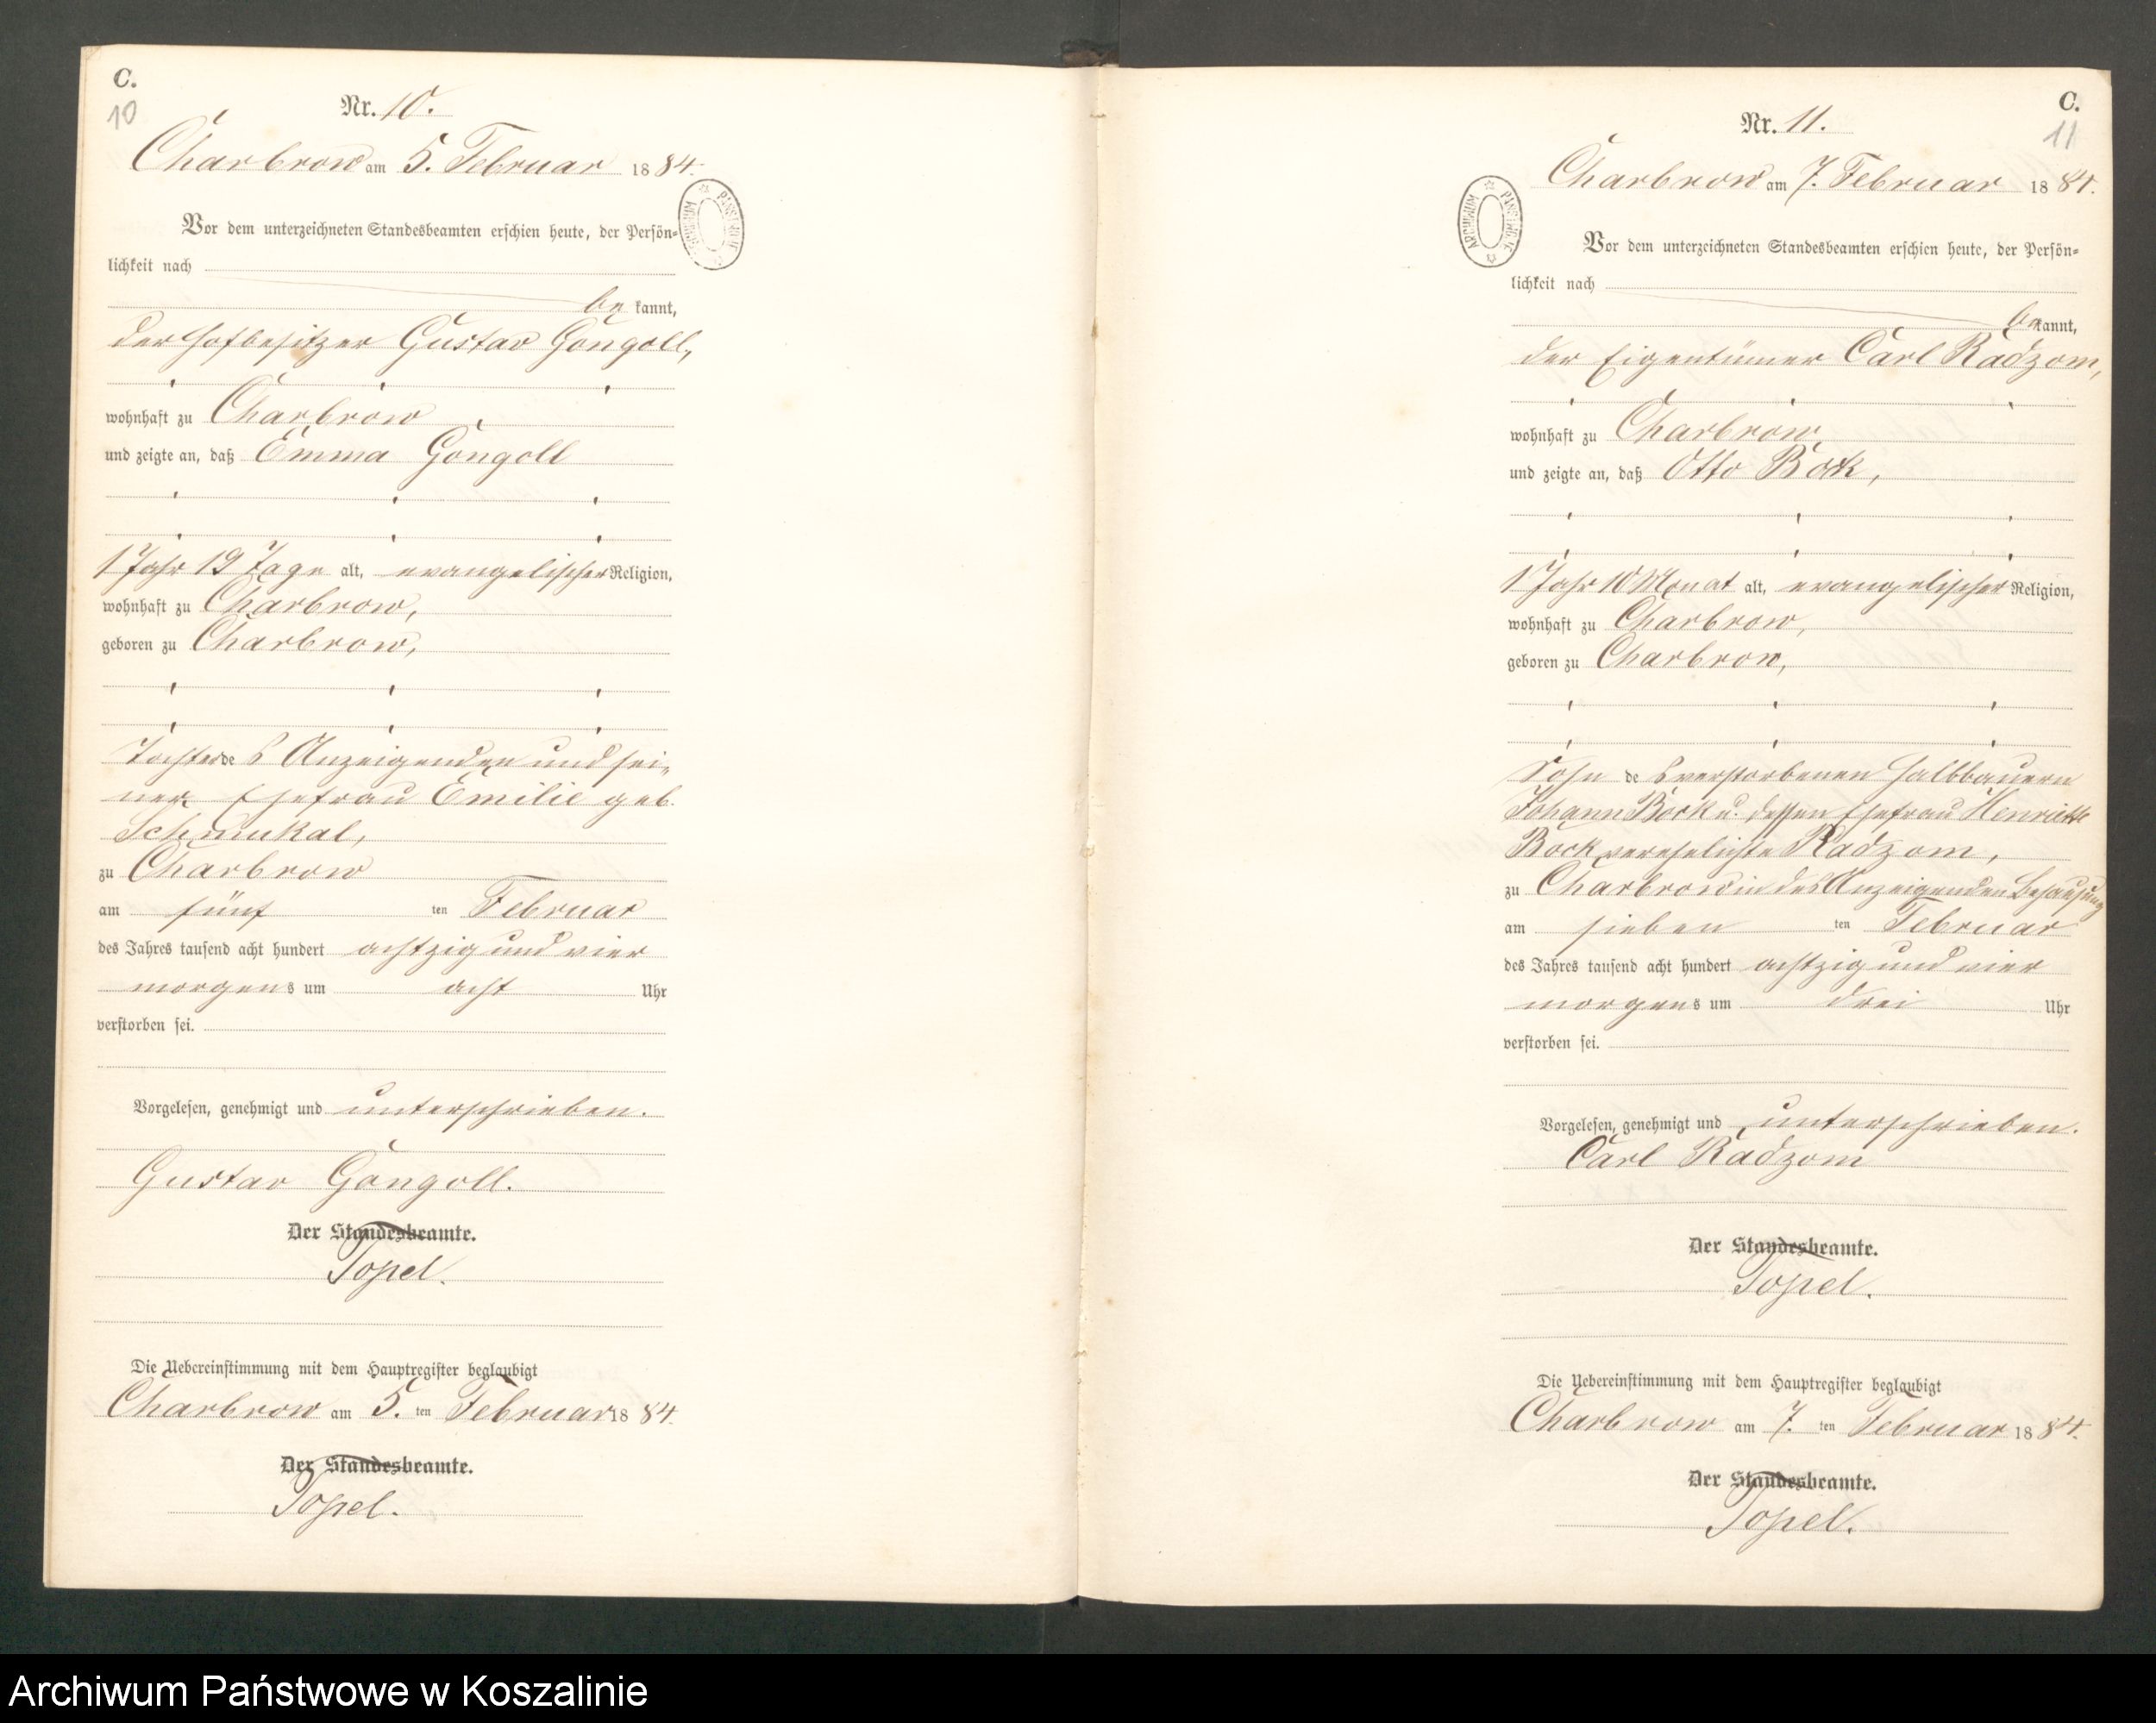 C.
10
Nr. 10.
Charbrow am 5. Februar 1884.
Vor dem unterzeichneten Standesbeamten erschien heute, der Persön-
lichkeit nach
be kannt,
der Hofbesitzer Gustav Gongoll,
wohnhaft zu Charbrow
und zeigte an, daß Emma Gongoll
1 Jahr 19 Tage alt, evangelischer Religion,
wohnhaft zu Charbrow,
geboren zu Charbrow,
Tochter des Anzeigenden und sei-
ner Ehefrau Emilie geb.
Schmukal,
zu Charbrow
am fünf ten Februar
des Jahres tausend acht hundert achtzig und vier
morgens um acht Uhr
verstorben sei.
Vorgelesen, genehmigt und unterschrieben.
Gustav Gongoll.
Der Standesbeamte.
Topel.
Die Uebereinstimmung mit dem Hauptregister beglaubigt
Charbrow am 5. ten Februar 1884.
Der Standesbeamte.
Topel.
ARCHIWUM PAŃSTWOWE
C.
11
Nr. 11.
Charbrow am 7. Februar 1884.
Vor dem unterzeichneten Standesbeamten erschien heute, der Persön-
lichkeit nach
be kannt,
der Eigentümer Carl Radzom,
wohnhaft zu Charbrow,
und zeigte an, daß Otto Bock,
1 Jahr 10 Monat alt, evangelischer Religion,
wohnhaft zu Charbrow,
geboren zu Charbrow,
Sohn des verstorbenen Halbbauern
Johann Bock u. dessen Ehefrau Henriette
Bock verehelichte Radzom,
zu Charbrow in des Anzeigenden Behausung
am sieben ten Februar
des Jahres tausend acht hundert achtzig und vier
morgens um drei Uhr
verstorben sei.
Vorgelesen, genehmigt und unterschrieben.
Carl Radzom
Der Standesbeamte.
Topel.
Die Uebereinstimmung mit dem Hauptregister beglaubigt
Charbrow am 7. ten Februar 1884.
Der Standesbeamte.
Topel.
ARCHIWUM PAŃSTWOWE
Archiwum Państwowe w Koszalinie